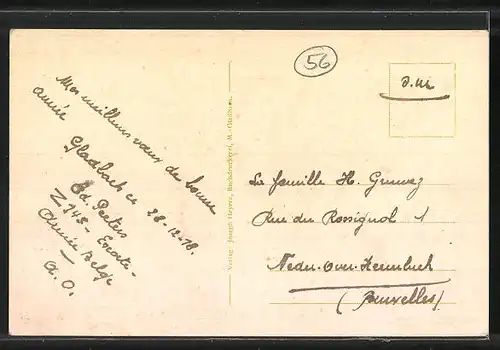 56
Mes meilleurs vœux de bonne
année
Gladbach ce 28-12-18.
Ed. Peeters
Z 145 -
Armée Belge
A. O.
Verlag: Joseph Heyers, Buchdruckerei, M.-Gladbach.
La famille H.
Rue du Rossignol 1
Neder-over-Heembeek
(Bruxelles)